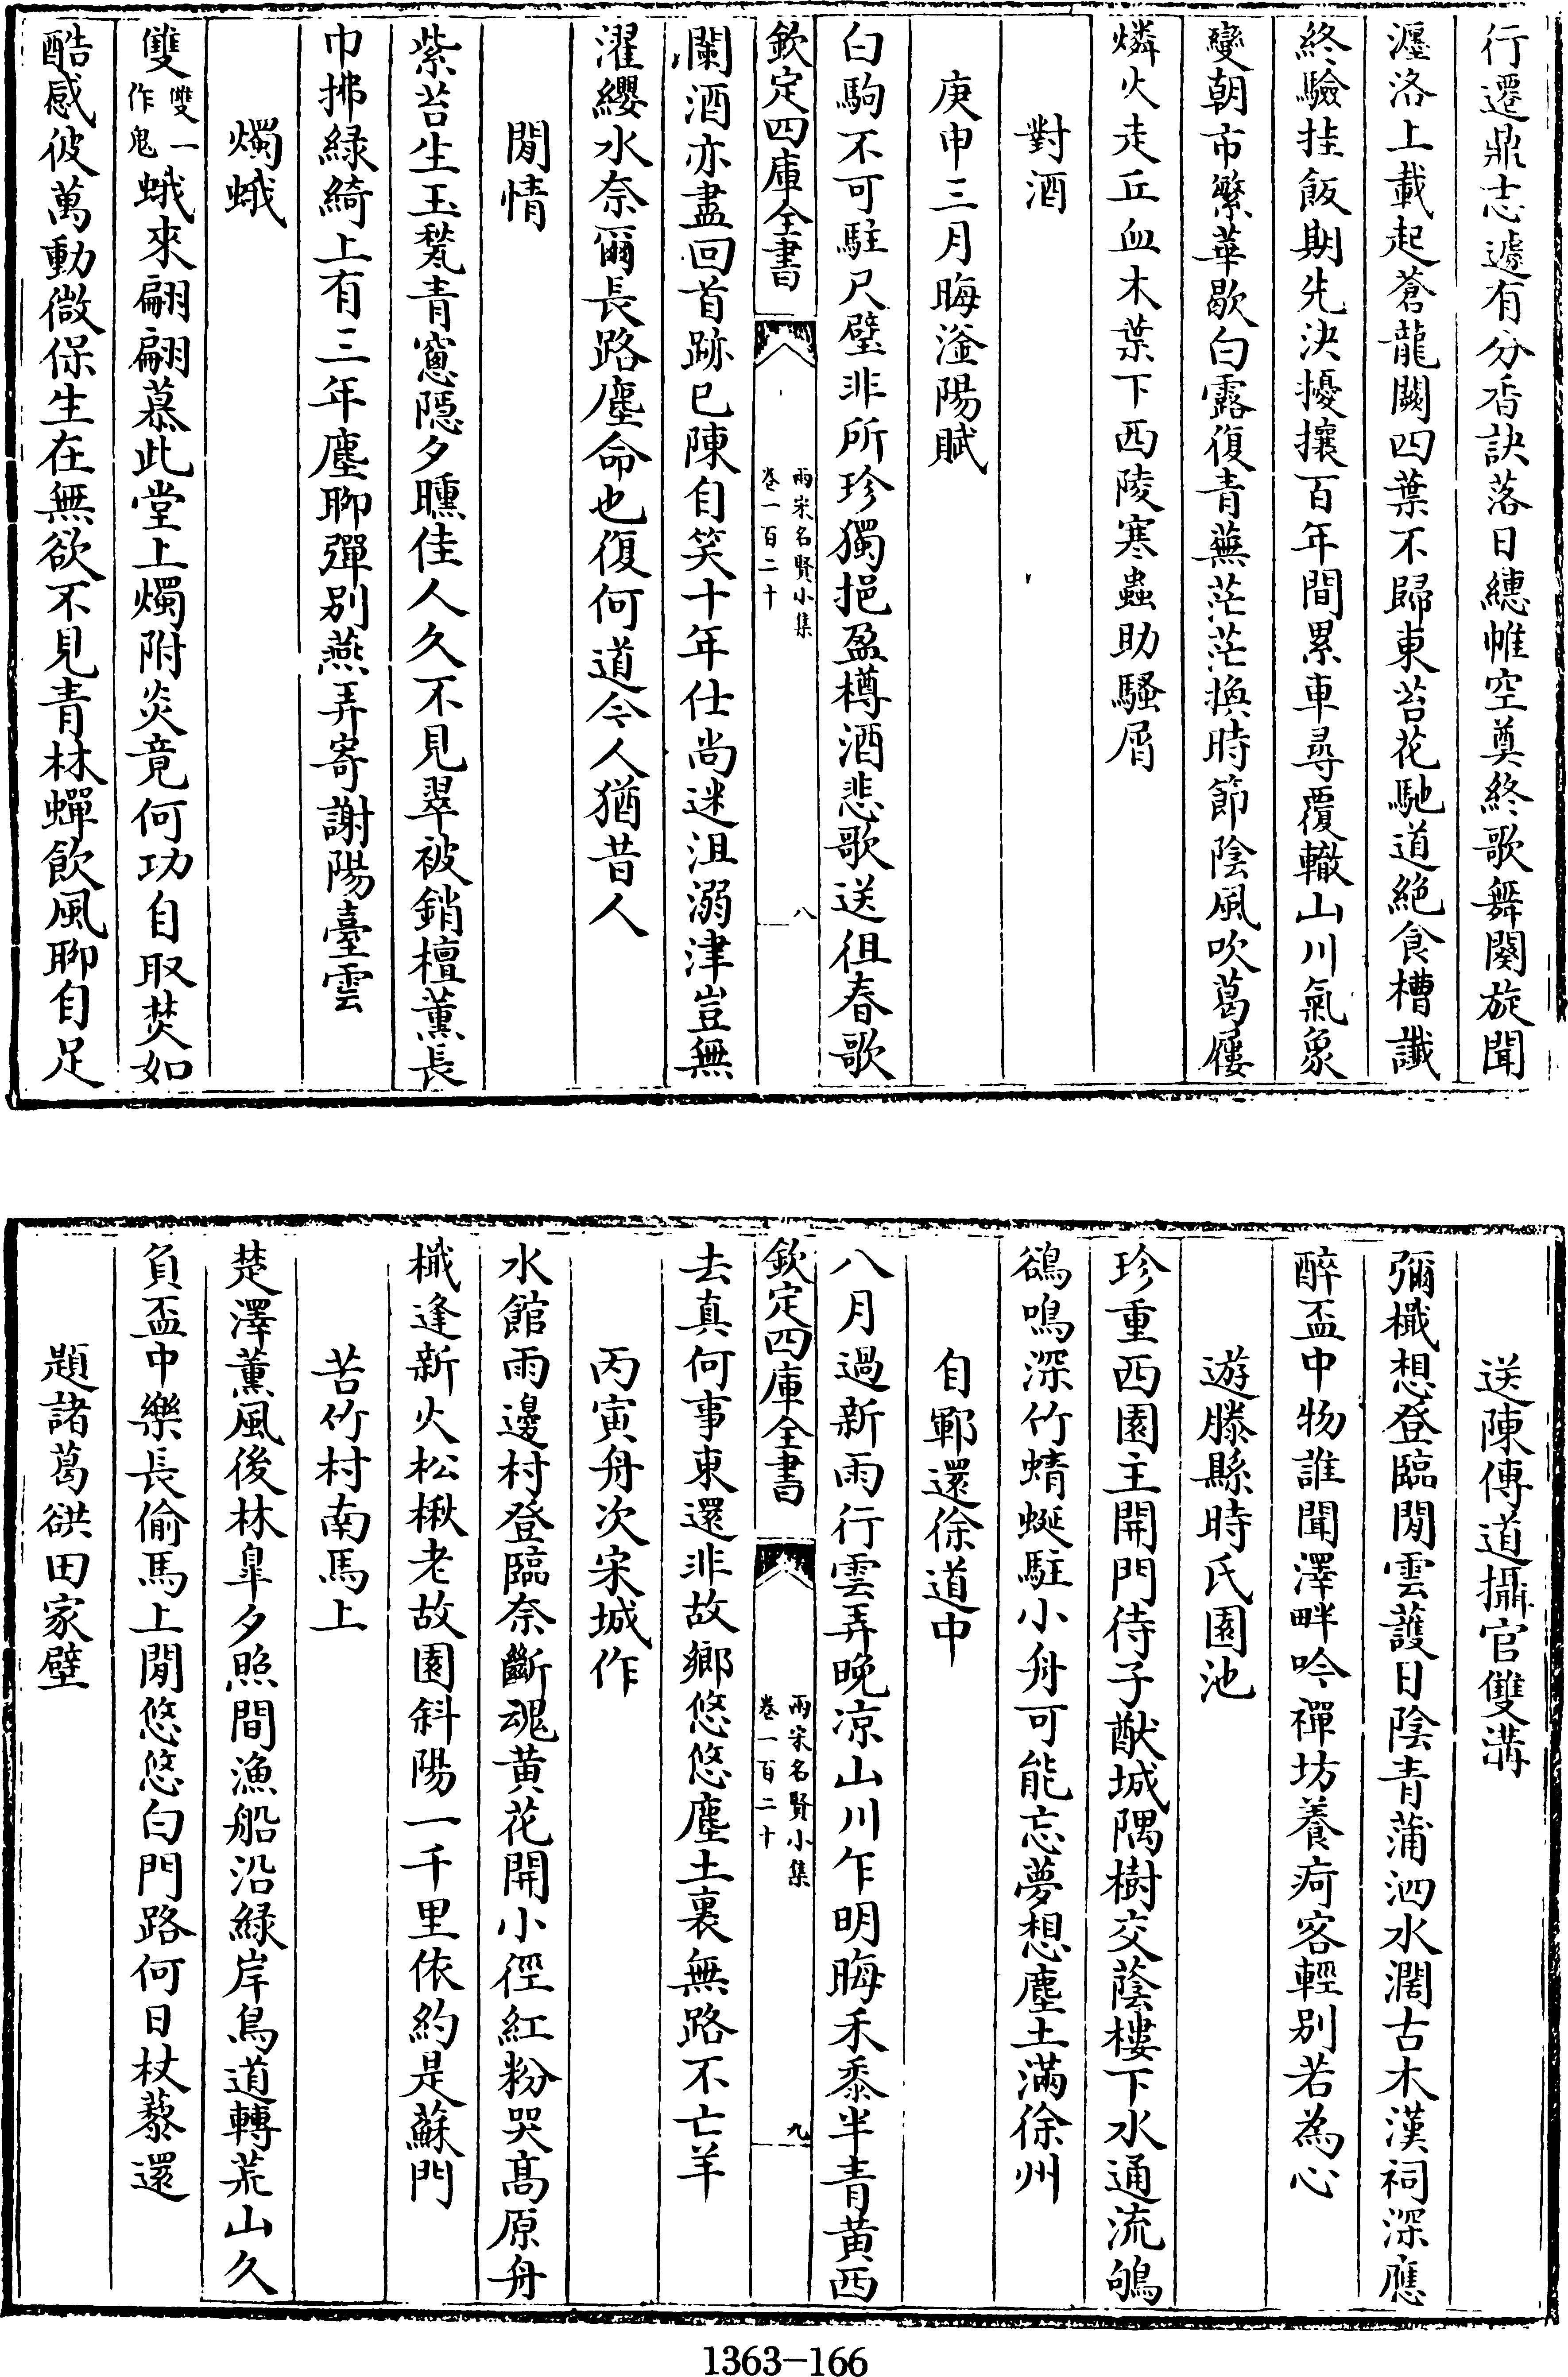 行遷鼎志遽有分香訣落日繐帷空奠終歌舞闋旋聞
瀍洛上載起蒼龍闕四葉不歸東苔花馳道絶食槽讖
終驗挂飯期先決擾攘百年間累車尋覆轍山川氣象
變朝市繁華歇白露復青蕪茫茫換時節陰風吹葛屨
燐火走丘血木葉下西陵寒蟲助騷屑
對酒
庚申三月晦滏陽賦
白駒不可駐尺璧非所珍獨挹盈樽酒悲歌送徂春歌
欽定四庫全書
兩宋名賢小集
卷一百二十
八
闌酒亦盡回首跡已陳自笑十年仕尚迷沮溺津豈無
濯纓水奈爾長路塵命也復何道今人猶昔人
閒情
紫苔生玉甃青窻隱夕曛佳人久不見翠被銷檀薰長
巾拂緑綺上有三年塵聊彈別燕弄寄謝陽臺雲
燭蛾
雙雙一作鬼蛾來翩翩慕此堂上燭附炎竟何功自取焚如
酷感彼萬動微保生在無欲不見青林蟬飲風聊自足
送陳傳道攝官雙溝
彌檝想登臨閒雲護日陰青蒲泗水濶古木漢祠深應
醉盃中物誰聞澤畔吟禪坊養疴客輕別若為心
遊滕縣時氏園池
珍重西園主開門待子猷城隅樹交蔭樓下水通流鴝
鵒鳴深竹蜻蜓駐小舟可能忘夢想塵土滿徐州
自鄆還徐道中
八月過新雨行雲弄晚凉山川乍明晦禾黍半青黄西
欽定四庫全書
兩宋名賢小集
卷一百二十
九
去真何事東還非故鄉悠悠塵土裏無路不亡羊
丙寅舟次宋城作
水館雨邊村登臨奈斷魂黄花開小徑紅粉哭髙原舟
檝逢新火松楸老故園斜陽一千里依約是蘇門
苦竹村南馬上
楚澤薰風後林臯夕照間漁船沿緑岸鳥道轉荒山久
負盃中樂長偷馬上閒悠悠白門路何日杖藜還
題諸葛谼田家壁
1363-166